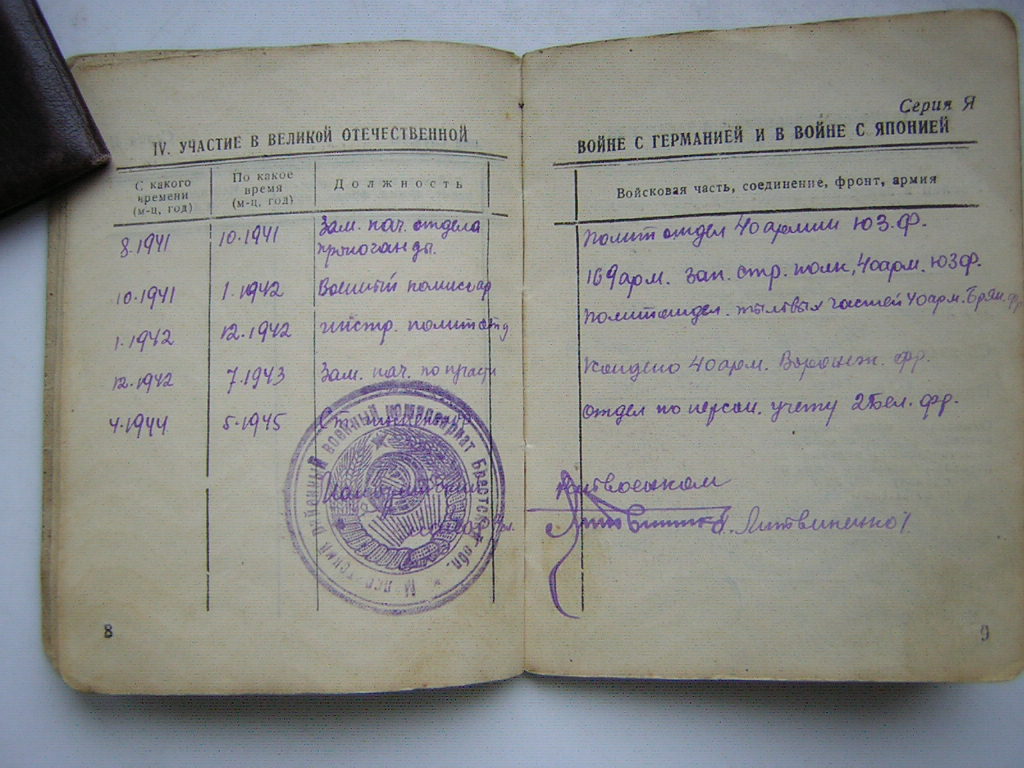 Серия Я
IV. УЧАСТИЕ В ВЕЛИКОЙ ОТЕЧЕСТВЕННОЙ
ВОЙНЕ С ГЕРМАНИЕЙ И В ВОЙНЕ С ЯПОНИЕЙ
С какого времени (м-ц, год)
По какое время (м-ц, год)
Должность
Войсковая часть, соединение, фронт, армия
8.1941 10.1941 Зам. нач. отдела
пропоганды. Политотдел 40 армии ЮЗ.ф.
10.1941 1.1942 Военный комиссар 169 арм. зап. стр. полк, 40 арм. ЮЗФ.
1.1942 12.1942 инстр. политотд Политотдел. тыловых частей 40 арм. Брян. фр
12.1942 7.1943 Зам. нач. по 40 арм. Воронеж. фр.
4.1944 5.1945 Ст. отдел по персон. учету 2 Бел. фр.
Районный военный комиссариат Брестской обл.
Райвоенком
Литвиненко
8
9